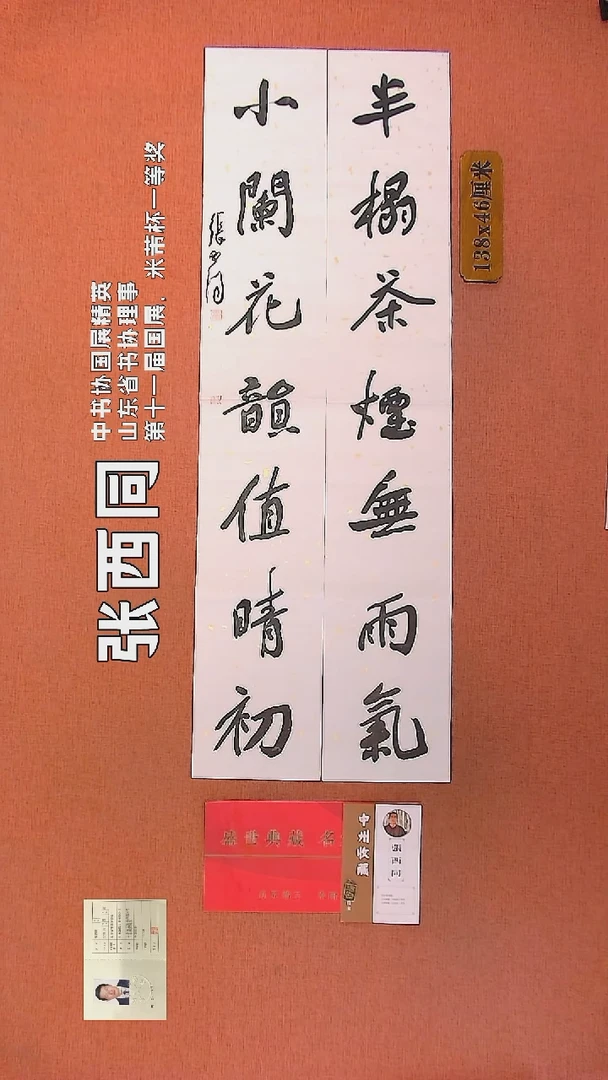 半榻茶煙無雨氣
小闌花韻值晴初
張西同
138x46厘米
张西同
中书协国展精英
山东省书协理事
第十一届国展，米芾杯一等奖
盛世典藏 名
中州收藏
張西同